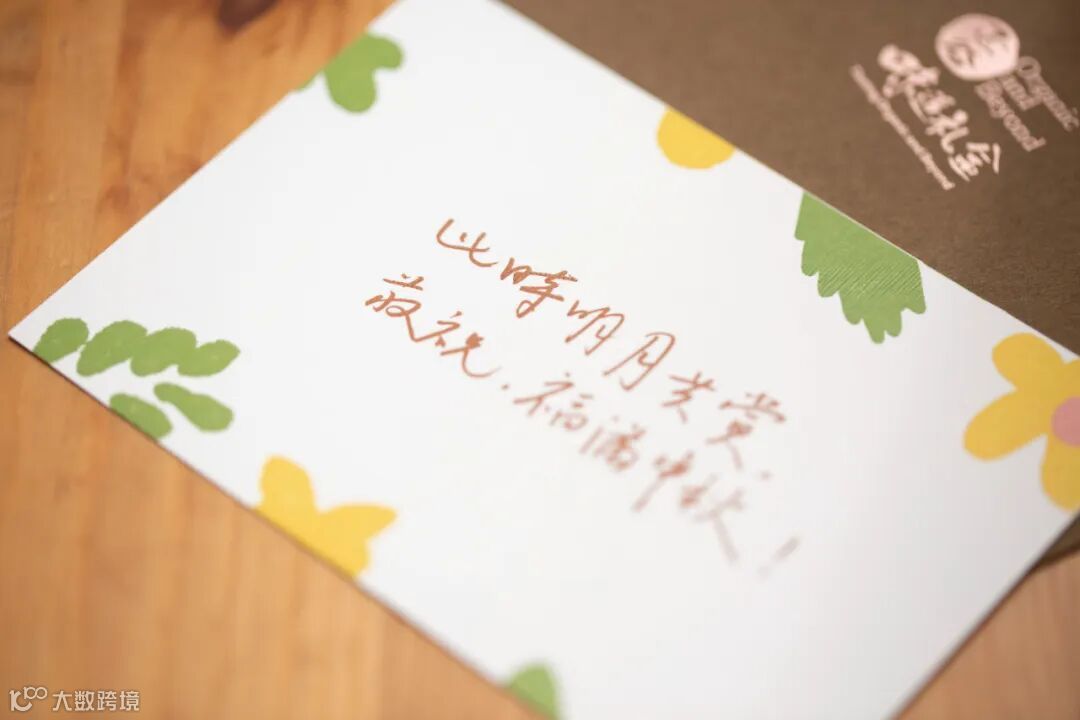 此时明月共赏.
敬祝.福满中秋！
Organic
and
Beyond
味道礼盒
大数跨境